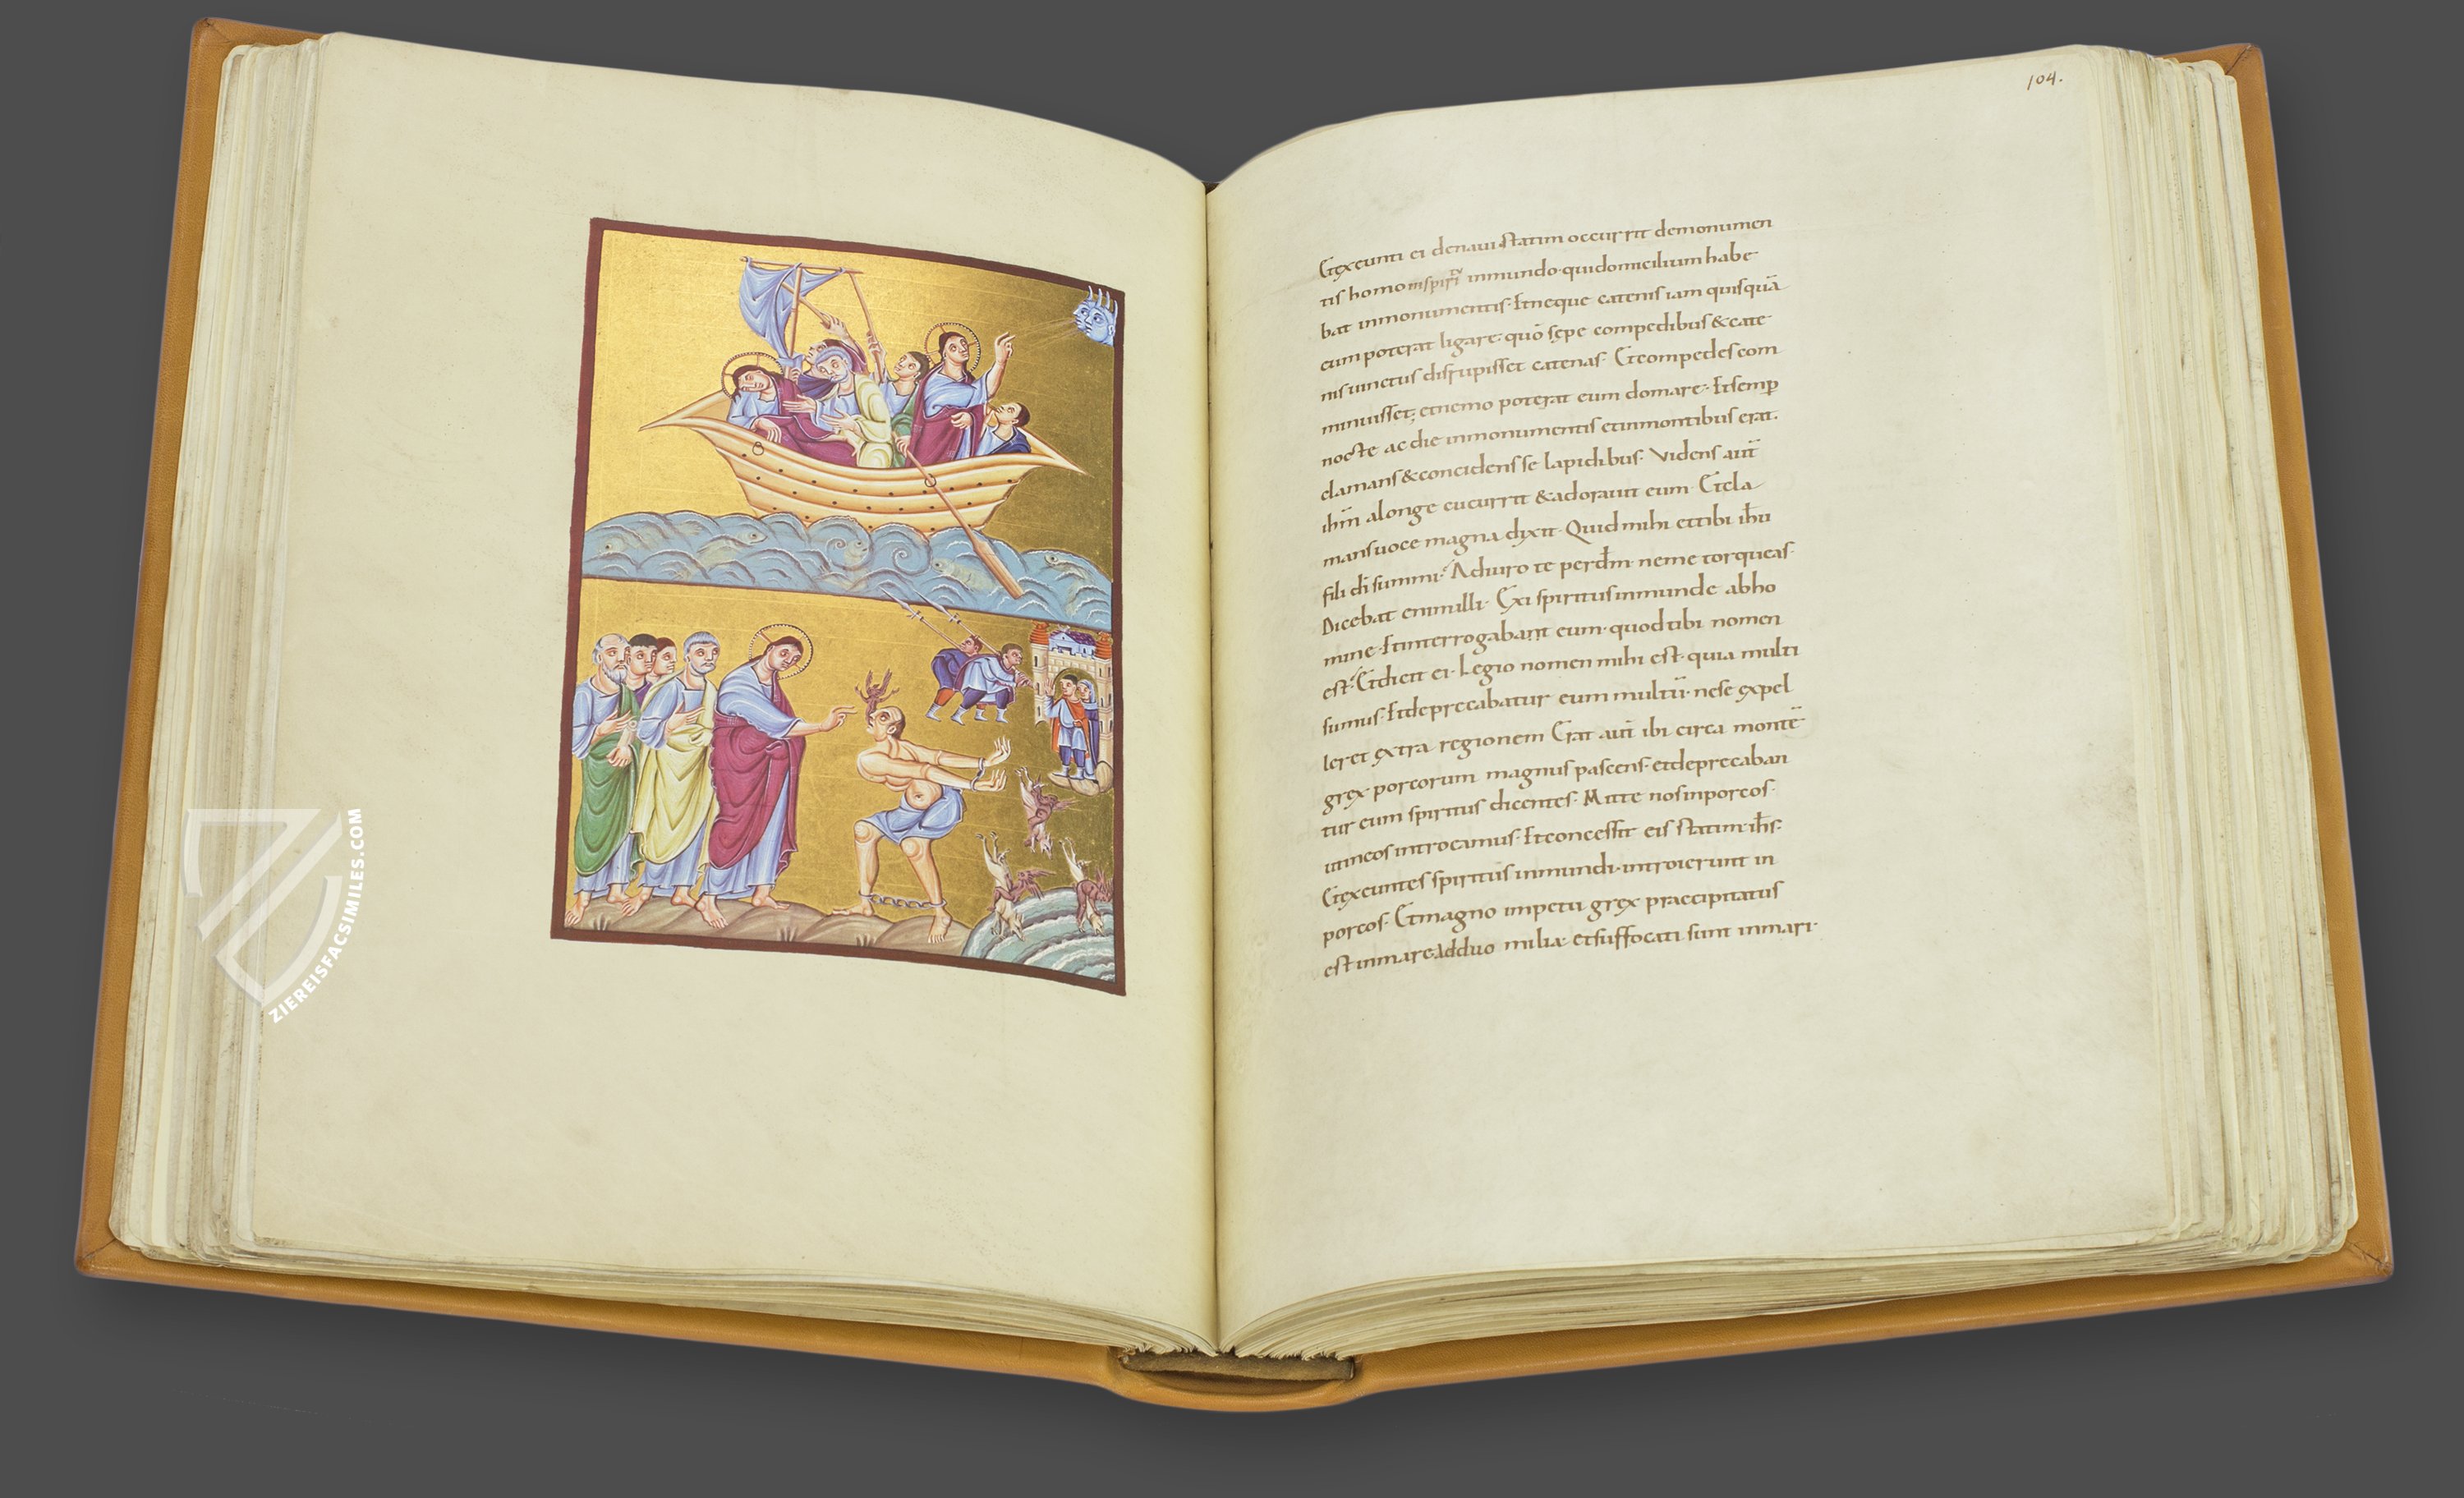 104.
Et exeunti ei denaui statim occurrit demonumen
tis homo inspiritu inmundo· quidomicilium habe
bat inmonumentis· Et neque catenis iam quisquā
eum poterat ligare· quō sępe compedibus & cate
nis uinctus disrupisset catenas· Et compedes com
minuisset; et nemo poterat eum domare· Et semp
nocte ac die inmonumentis et inmontibus erat·
clamans & concidens se lapidibus· Videns aut
ihm alonge cucurrit & adorauit eum· Et cla
mans uoce magna dixit· Quid mihi et tibi ihu
fili di summi· Adiuro te per dm neme torqueas·
Dicebat enim illi· Exi spiritus inmunde abho
mine· Et interrogabat eum· quod tibi nomen
est· Et dicit ei· Legio nomen mihi est· quia multi
sumus· Et deprecabatur eum multū· nese expel
leret extra regionem Erat aut ibi circa montē
grex porcorum magnus pascens· et deprecaban
tur eum spiritus dicentes· Mitte nos inporcos·
utineos introeamus· Et concessit eis statim ihs·
Et exeuntes spiritus inmundi· introierunt in
porcos· Et magno impetu grex praecipitatus
est inmare adduo milia· et suffocati sunt inmari·
ZIEREISFACSIMILES.COM